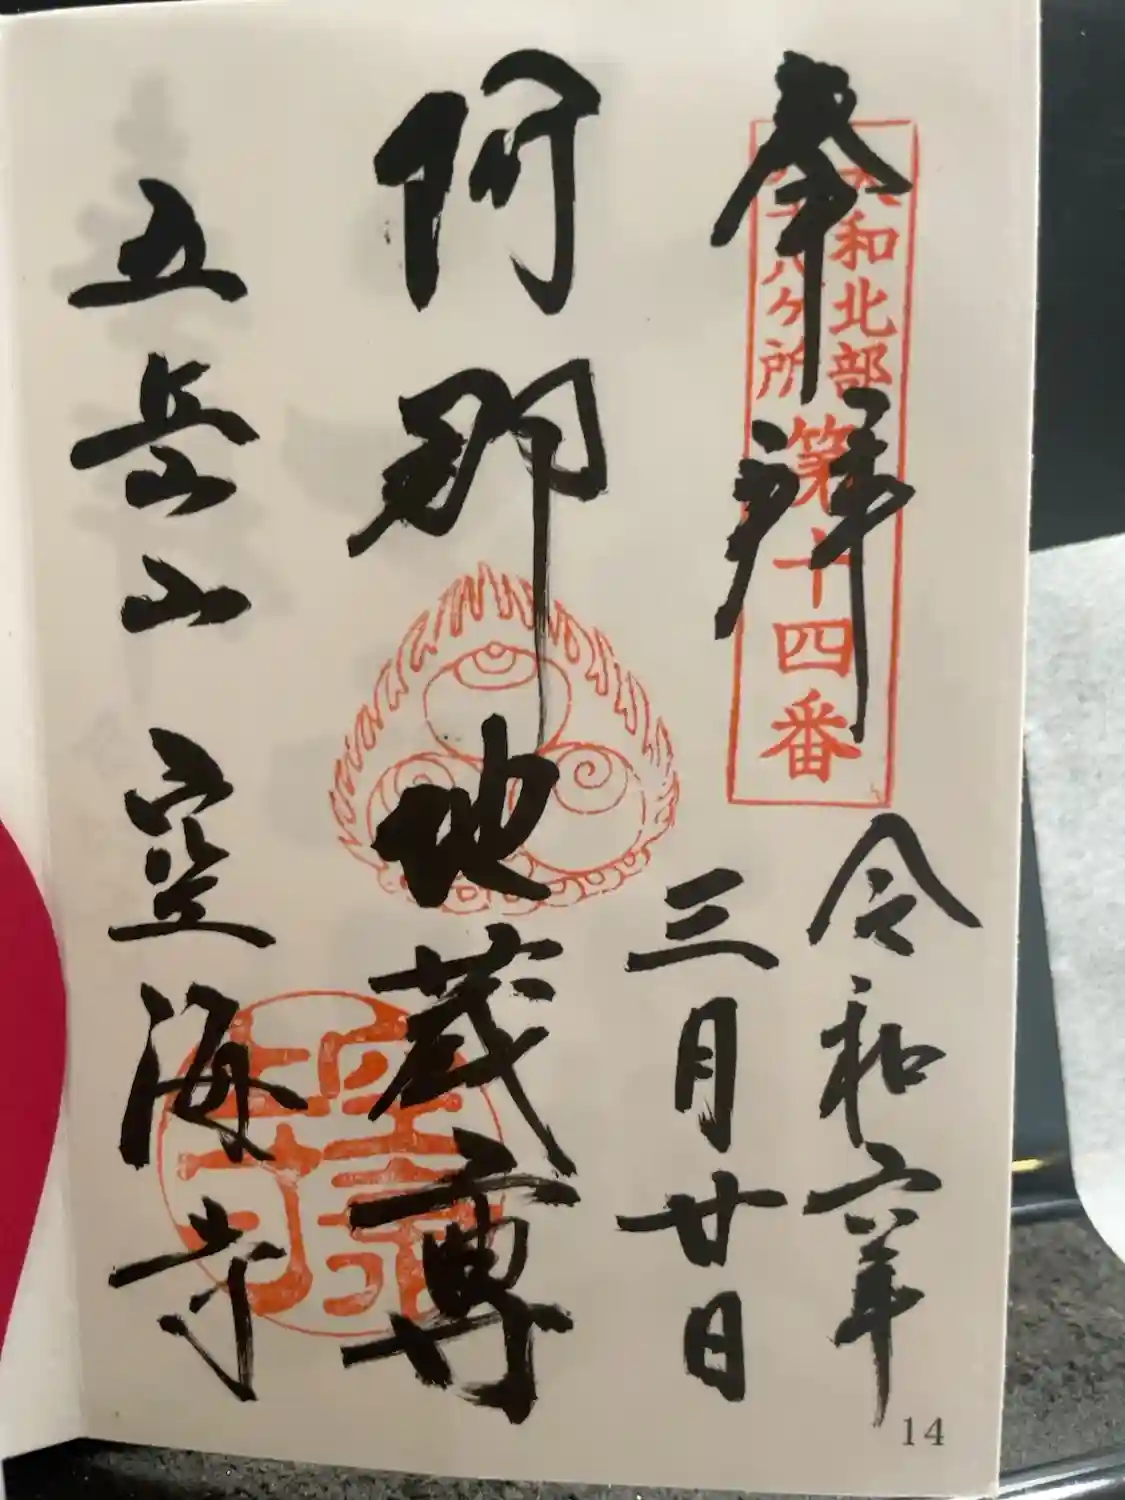 奉拝
大和北部
八十八ヶ所
第十四番
令和六年
三月廿日
阿那地蔵尊
五岳山
空海寺
14